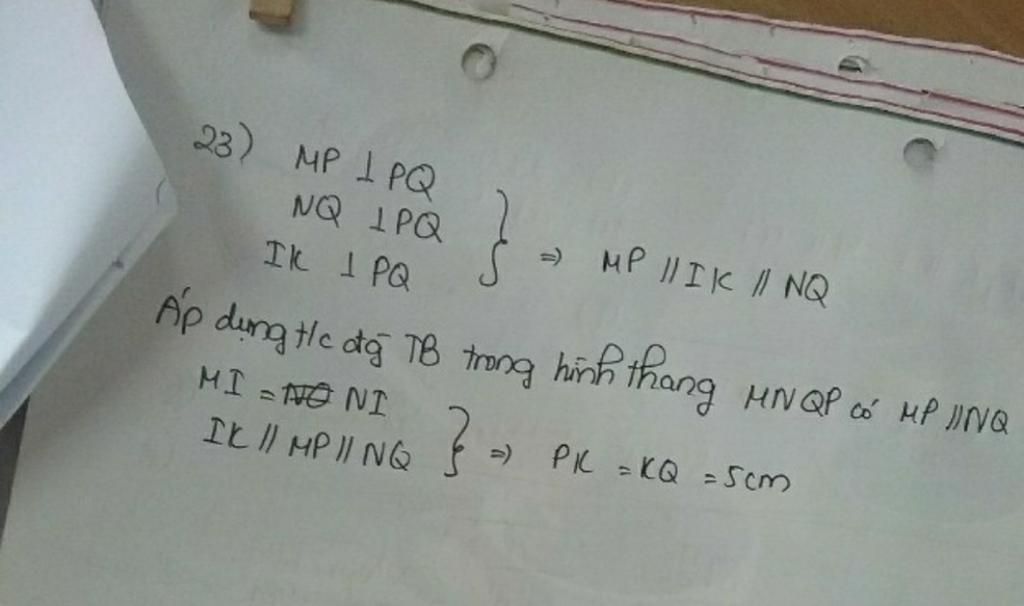 23) MP ⊥ PQ
NQ ⊥ PQ
IK ⊥ PQ } ⇒ MP // IK // NQ
Áp dụng t/c đg TB trong hình thang MNQP có MP // NQ
MI = NI
IK // MP // NQ } ⇒ PK = KQ = 5cm